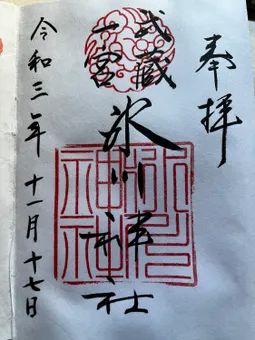 奉拝
武蔵
一宮
氷川神社
令和三年十一月十七日